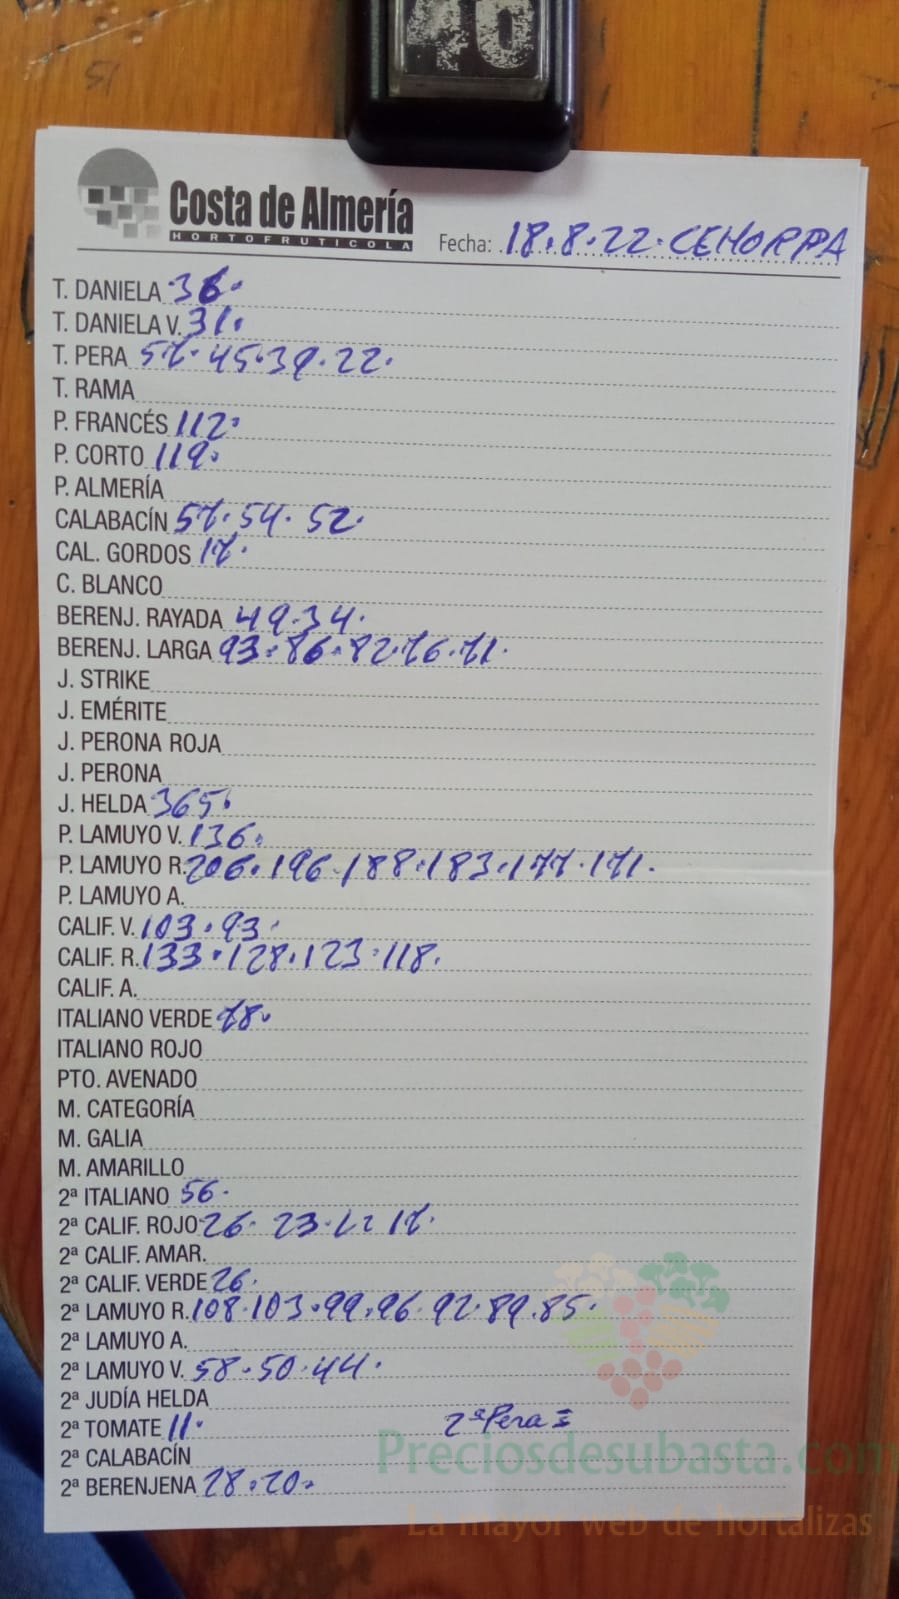 Costa de Almería
HORTOFRUTICOLA
Fecha: 18.8.22. CEHORPA
T. DANIELA 36.
T. DANIELA V. 31.
T. PERA 57.45.39.22.
T. RAMA
P. FRANCÉS 112.
P. CORTO 119.
P. ALMERÍA
CALABACÍN 57.54.52.
CAL. GORDOS 17.
C. BLANCO
BERENJ. RAYADA 49.34.
BERENJ. LARGA 93.86.82.76.71.
J. STRIKE
J. EMÉRITE
J. PERONA ROJA
J. PERONA
J. HELDA 365.
P. LAMUYO V. 136.
P. LAMUYO R. 206.196.188.183.177.171.
P. LAMUYO A.
CALIF. V. 103.93.
CALIF. R. 133.128.123.118.
CALIF. A.
ITALIANO VERDE 78.
ITALIANO ROJO
PTO. AVENADO
M. CATEGORÍA
M. GALIA
M. AMARILLO
2ª ITALIANO 56.
2ª CALIF. ROJO 26. 23. 17.
2ª CALIF. AMAR.
2ª CALIF. VERDE 26.
2ª LAMUYO R. 108.103.99.96.92.89.85.
2ª LAMUYO A.
2ª LAMUYO V. 58.50.44.
2ª JUDÍA HELDA
2ª TOMATE 11. 2ª Pera =
2ª CALABACÍN
2ª BERENJENA 28.20.
Preciosdesubasta.com
La mayor web de hortalizas